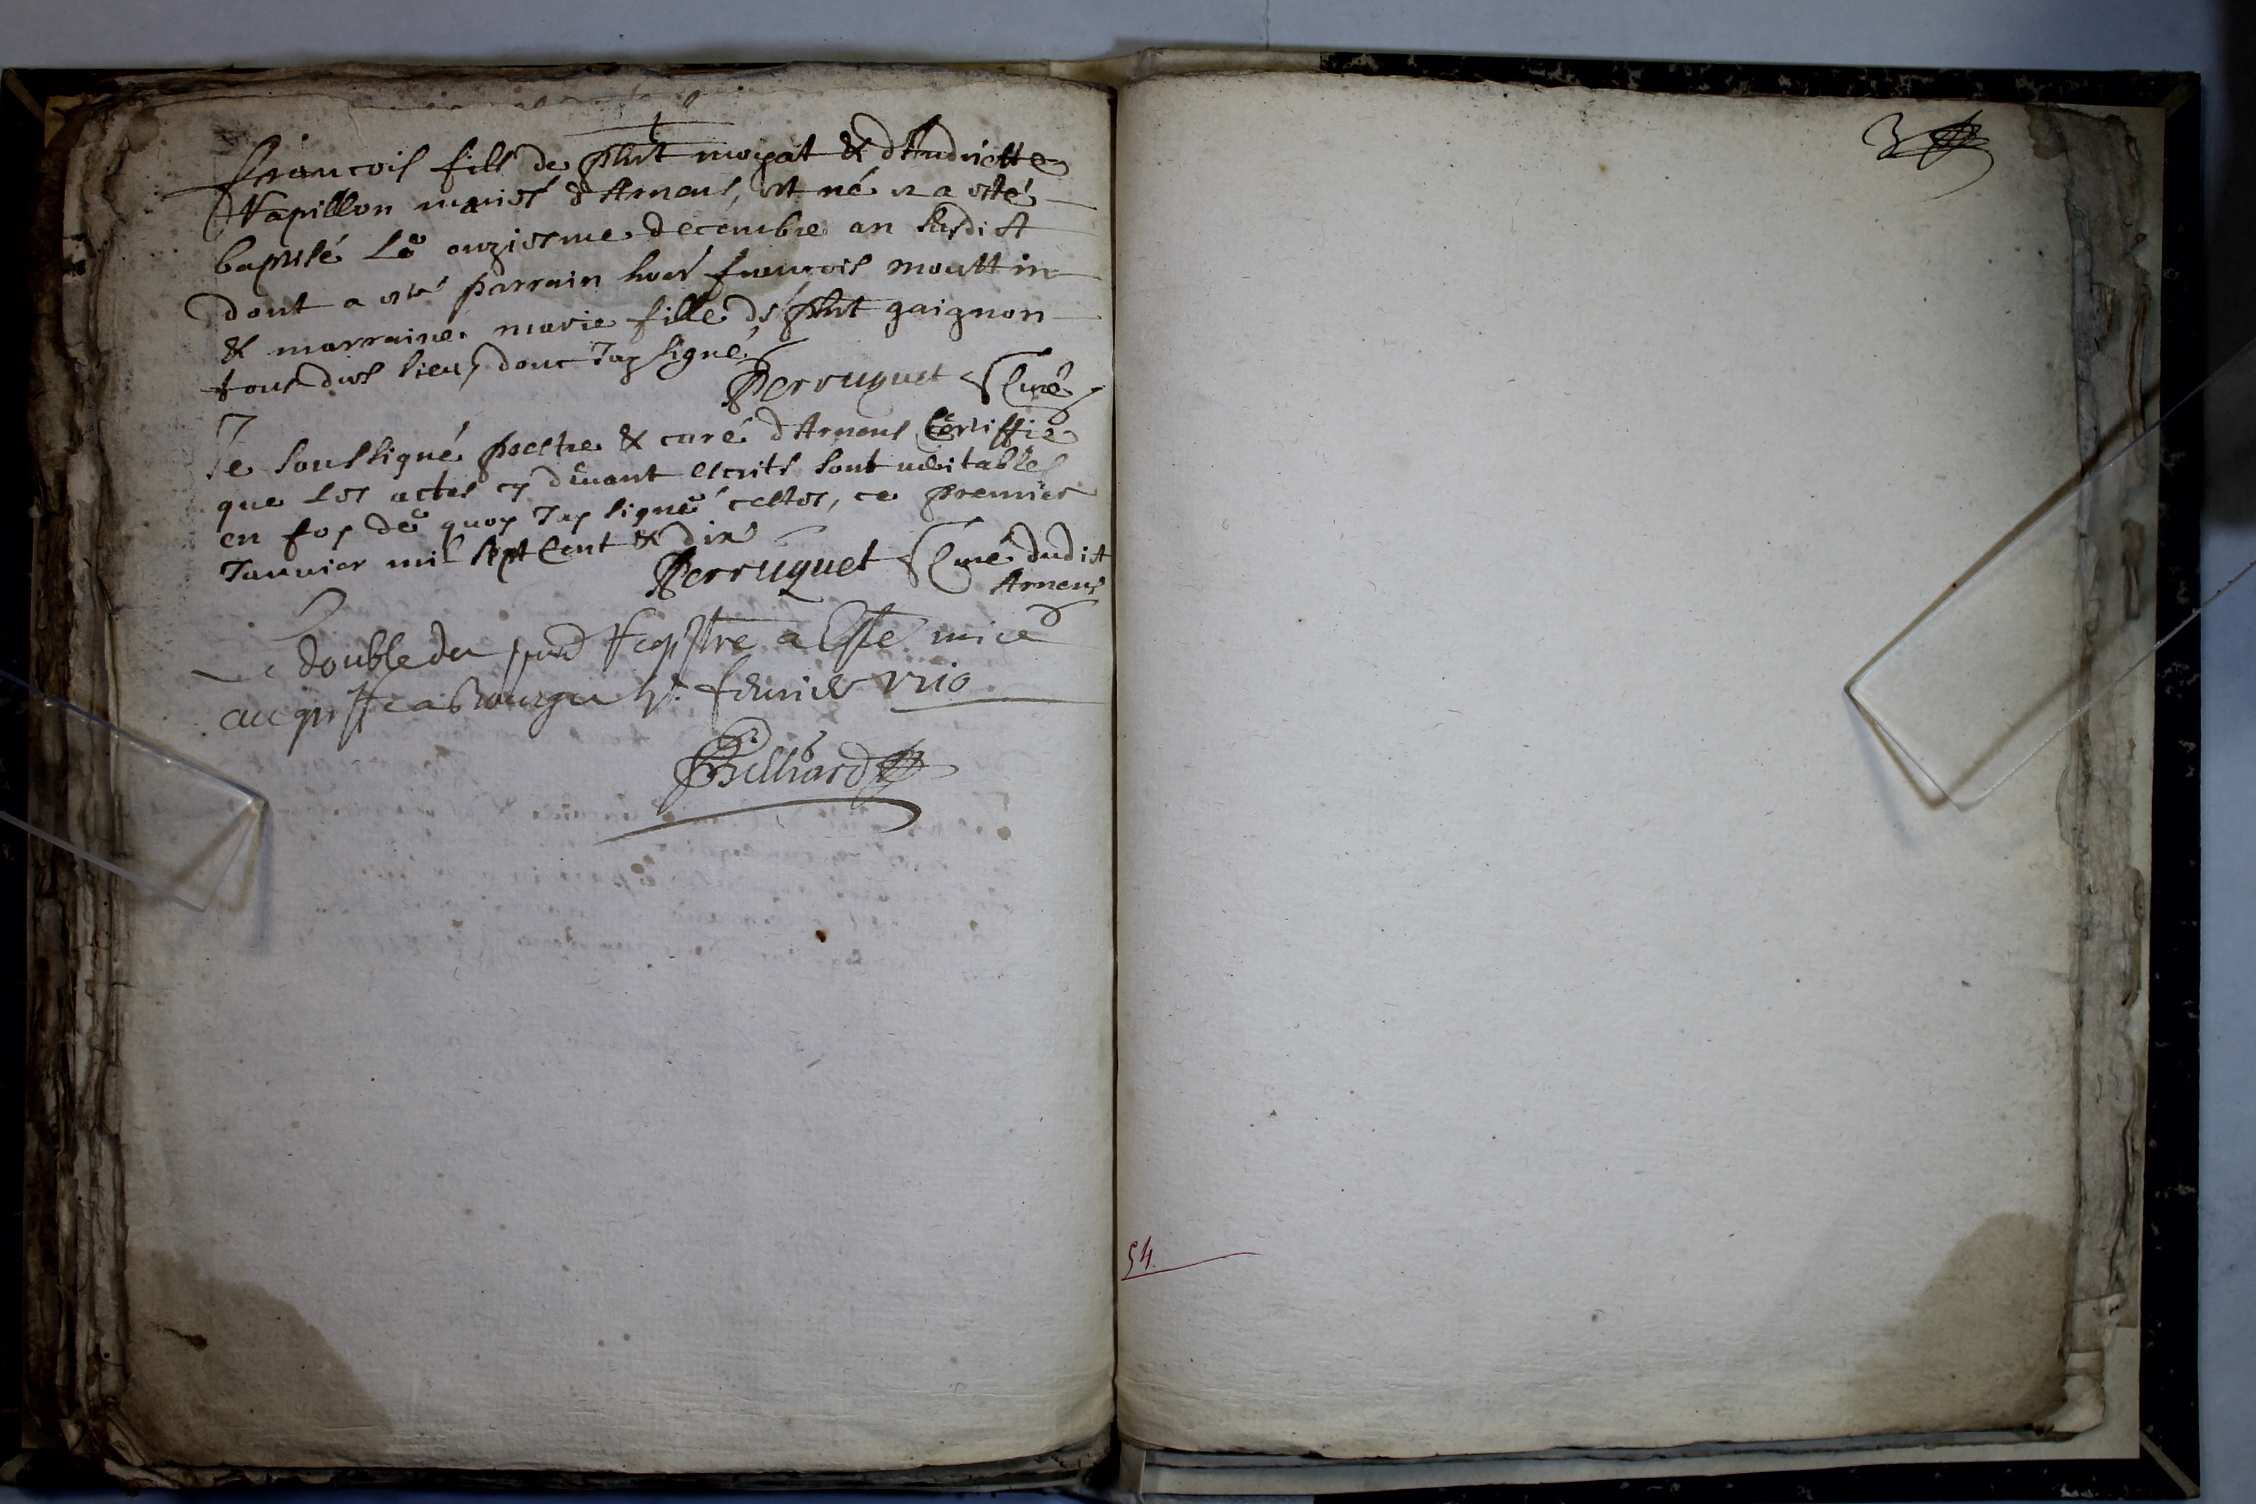 francois fills de phbt moyat & d'Andriette
Vapillon mariés d'Arnans, est né et a esté
baptisé le onziesme decembre an susdict
dont a esté parrain hon francois mouttin
& marraine marie fille de phbt gaignon
tous dud lieu, donc J'ay signé
Perruquet Curé
Je soussigné prestre & curé d'Arnans Certiffie
que les actes cy devant escrits sont veritables
en foy de quoy J'ay signé cestes, ce premier
Janvier mil sept Cent & dix
Perruquet Curé dudict
Arnans
Le double du pnt Registre a esté mice
au greffe a Bourg le fevrier 1710
Billiard
3
54.